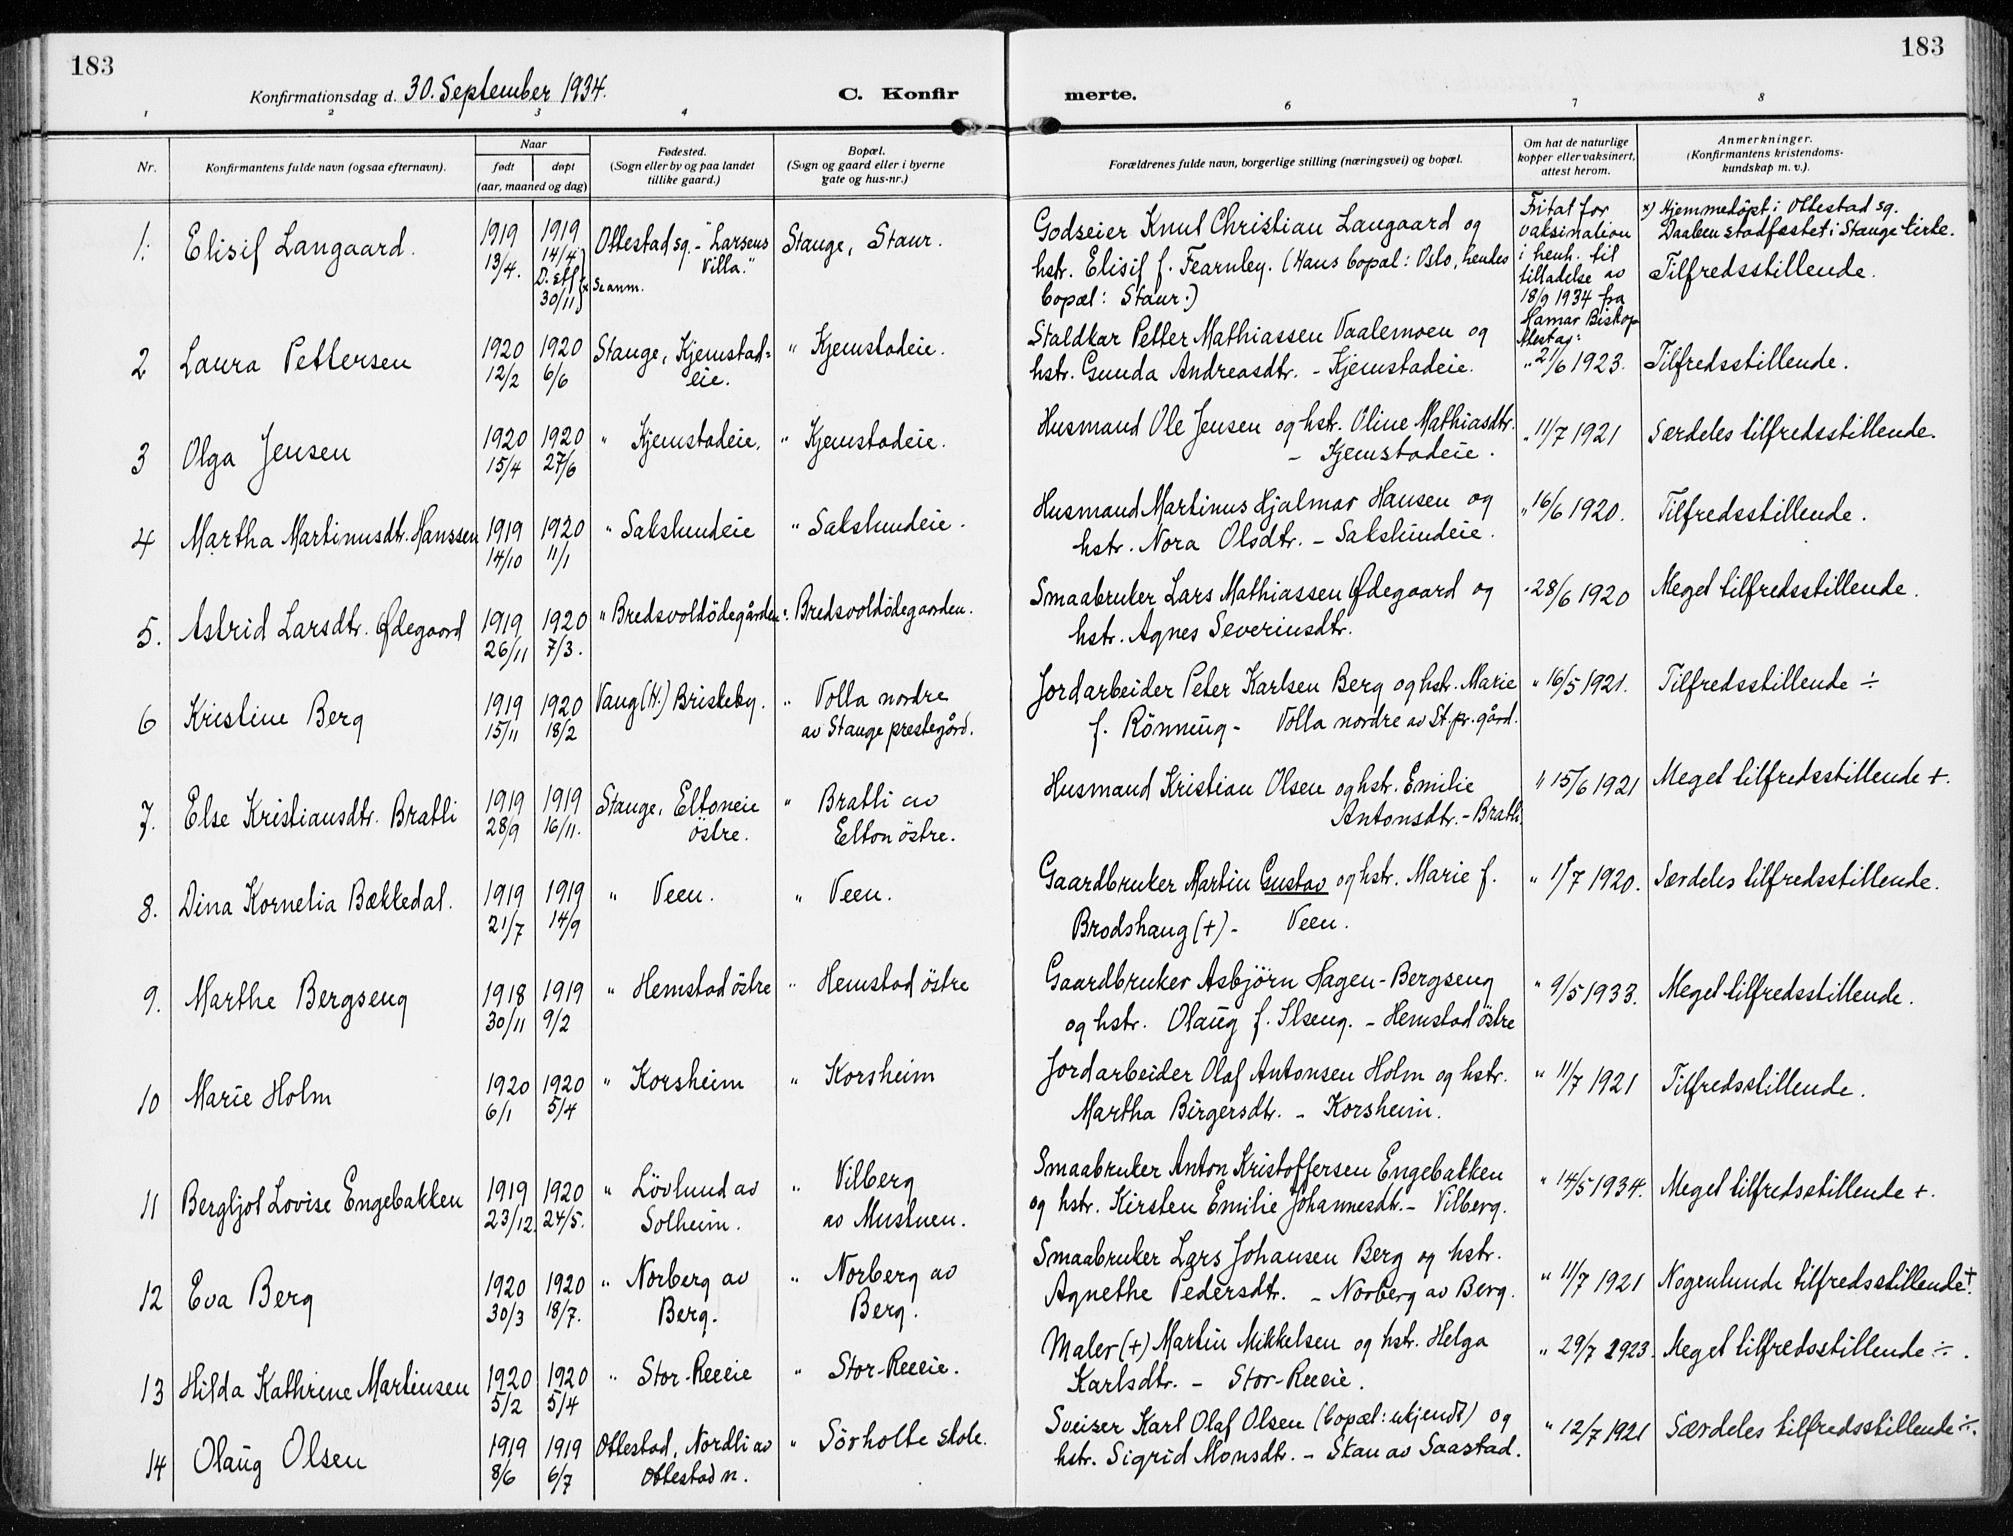 183
183
Konfirmationsdag d. 30. September 1934.
C. Konfir
merte.
1 2 3 4 6 7 8
Nr.
Konfirmantens fulde navn (ogsaa efternavn).
Naar
født døpt
(aar, maaned og dag)
Fødested.
(Sogn eller by og paa landet
tillike gaard.)
Bopæl.
(Sogn og gaard eller i byerne
gate og hus-nr.)
Forældrenes fulde navn, borgerlige stilling (næringsvei) og bopæl.
Om hat de naturlige
kopper eller vaksinert,
attest herom.
Anmerkninger.
(Konfirmantens kristendoms-
kundskap m. v.).
1. Elisif Langaard. 1919 13/4. 1919 14/4 D. stf. 30/11 x Se anm. Ottestad sg. - "Larsens Villa." Stange, Staur.
Godseier Knut Christian Langaard og
hstr. Elisif f. Fearnley. (Hans bopæl: Oslo, hendes
bopæl: Staur.)
Fritat for
vaksination
i henh. til
tilladelse av
18/9 1934 fra
Hamar Biskop
x) Hjemmedöpt i Ottestad sg.
Daaben stadfæstet i Stange kirke.
Tilfredsstillende.
2 Laura Pettersen 1920 12/2 1920 6/6 Stange, Kjemstad= eie. " Kjemstadeie.
Staldkar Petter Mathiassen Vaalemoen og
hstr. Gunda Andreasdtr. - Kjemstadeie.
Attest ag:
" 21/6 1923. Tilfredsstillende.
3 Olga Jensen 1920 15/4 1920 27/6 " Kjemstadeie. " Kjemstadeie.
Husmand Ole Jensen og hstr. Oline Mathiasdtr.
- Kjemstadeie.
" 11/7 1921 Særdeles tilfredsstillende.
4 Martha Martinusdtr. Hanssen 1919 14/10 1920 11/1 " Sakslundeie " Sakslundeie.
Husmand Martinus Hjalmar Hansen og
hstr. Nora Olsdtr. - Sakslundeie.
" 16/6 1920. Tilfredsstillende.
5. Astrid Larsdtr. Ødegaard 1919 26/11 1920 7/3. " Bredsvoldödegården " Bredsvoldödegaarden.
Smaabruker Lars Mathiassen Ødegaard og
hstr. Agnes Severinsdtr.
" 28/6 1920 Meget tilfredsstillende.
6 Kristine Berg 1919 15/11 1920 18/2 Vang (H.) Briskeby. " Volla nordre
av Stange prestegård.
Jordarbeider Peter Karlsen Berg og hstr. Marie
f. Rönning - Volla nordre av St. pr. gård.
" 16/5 1921. Tilfredsstillende ÷
7. Else Kristiansdtr. Bratli 1919 28/9 1919 16/11. Stange, Eltoneie östre. " Bratli av
Elton östre.
Husmand Kristian Olsen og hstr. Emilie
Antonsdtr. - Bratli.
" 15/6 1921 Meget tilfredsstillende +.
8. Dina Kornelia Bækkedal. 1919 21/7 1919 14/9 " Veen. " Veen.
Gaardbruker Martin Gustav og hstr. Marie f.
Brodshaug (+) - Veen.
" 1/7 1920. Særdeles tilfredsstillende.
9. Marthe Bergseng 1918 30/11 1919 9/2 " Hemstad östre " Hemstad östre
Gaardbruker Asbjørn Hagen-Bergseng
og hstr. Olaug f. Ilseng. - Hemstad östre
" 9/5 1933. Meget tilfredsstillende.
10 Marie Holm 1920 6/1 1920 5/4 " Korsheim " Korsheim
Jordarbeider Olaf Antonsen Holm og hstr.
Martha Birgersdtr. - Korsheim.
" 11/7 1921 Tilfredsstillende.
11 Bergljot Lovise Engebakken 1919 23/12. 1920 24/5. " Lövlund av Solheim. " Vilberg
av Mustuen.
Smaabruker Anton Kristoffersen Engebakken
og hstr. Kirsten Emilie Johannesdtr. - Vilberg.
" 14/5 1934. Meget tilfredsstillende +.
12 Eva Berg 1920 30/3 1920 18/7. " Norberg av Berg. " Norberg av
Berg.
Smaabruker Lars Johansen Berg og hstr.
Agnethe Pedersdtr. - Norberg av Berg.
" 11/7 1921 Nogenlunde tilfredsstillende +.
13 Hilda Kathrine Martinsen 1920 5/2 1920 5/4 " Stor-Reeeie " Stor-Reeeie.
Maler (+) Martin Mikkelsen og hstr. Helga
Karlsdtr. - Stor-Reeeie.
" 29/7 1923. Meget tilfredsstillende ÷.
14 Olaug Olsen 1919 8/6 1919 6/7 Ottestad, Nordli av Ottestad n. " Sörholte skole.
Sveiser Karl Olaf Olsen (bopæl: ukjendt) og
hstr. Sigrid Monsdtr. - Skau av Saastad.
" 12/7 1921 Særdeles tilfredsstillende ÷.